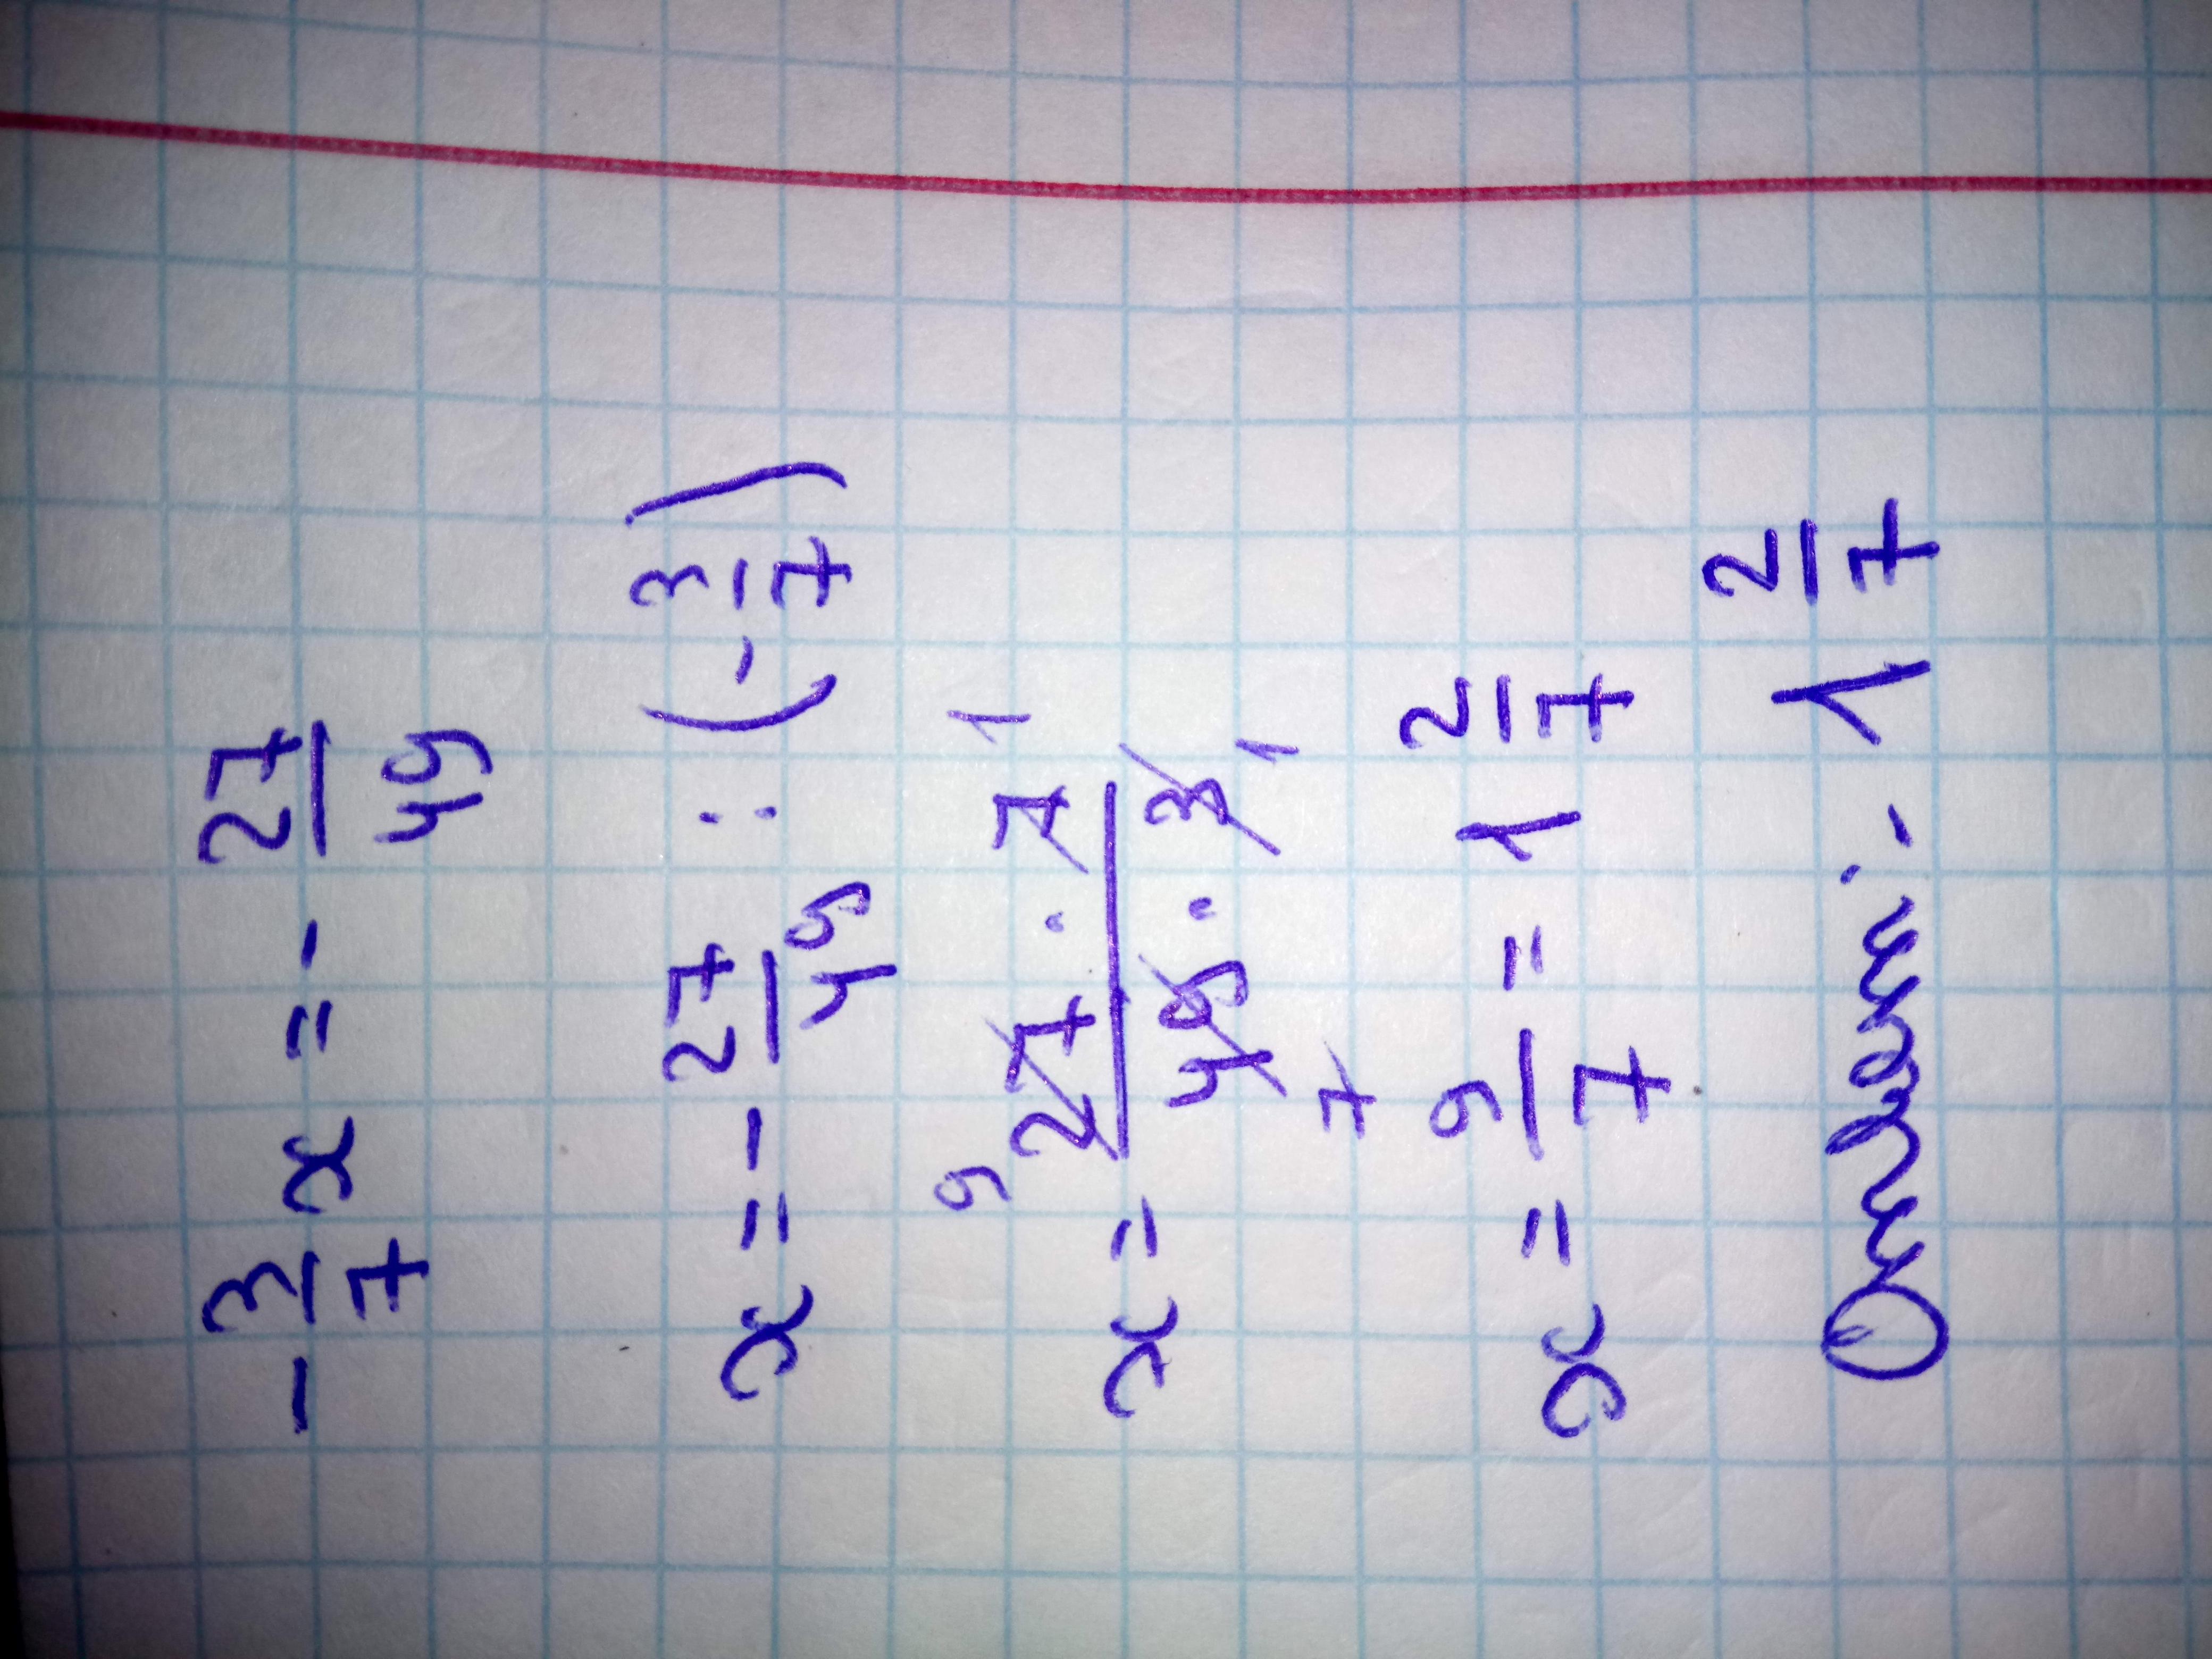 -3/7 x = -27/49
x = -27/49 : (-3/7)
x = 27 · 7 / 49 · 3 9 1 7 1
x = 9/7 = 1 2/7
Ответ: 1 2/7